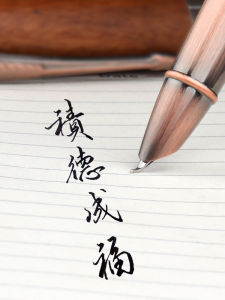 積德成福